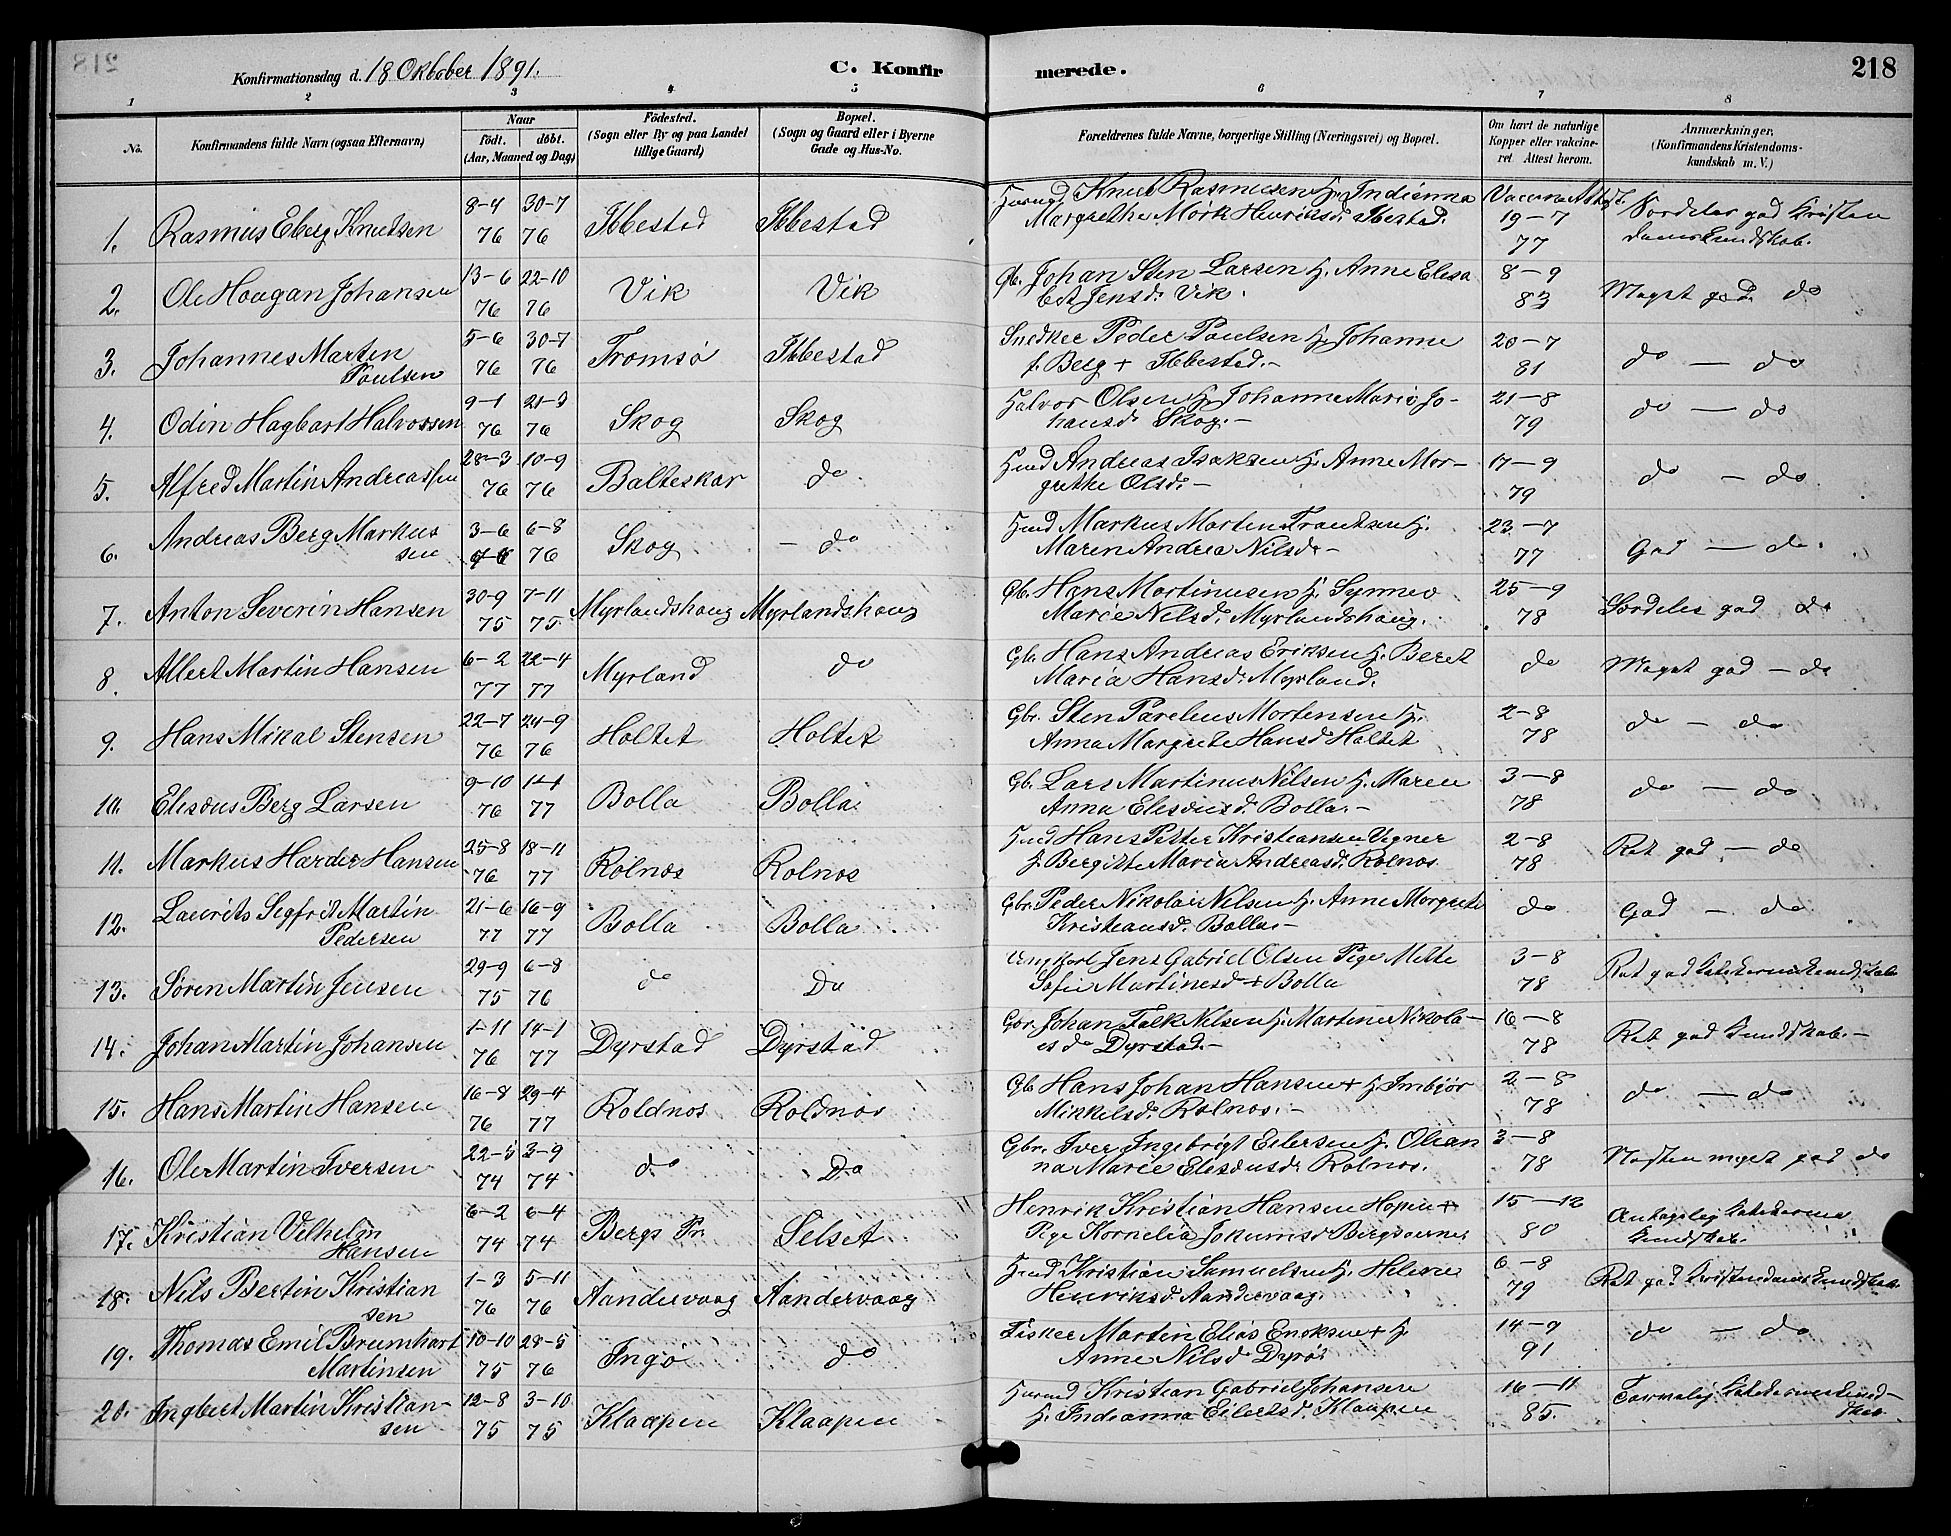 Konfirmationsdag d. 18 Oktober 1891.
C. Konfir
merede.
218
1 2 3 4 5 6 7 8
No.
Konfirmandens fulde Navn (ogsaa Efternavn)
Naar
født. døbt.
(Aar, Maaned og Dag)
Fødested.
(Sogn eller By og paa Landet
tillige Gaard)
Bopæl.
(Sogn og Gaard eller i Byerne
Gade og Hus-No.
Forældrenes fulde Navne, borgerlige Stilling (Næringsvei) og Bopæl.
Om havt de naturlige
Kopper eller vakcine-
ret. Attest herom.
Anmærkninger.
(Konfirmandens Kristendoms-
kundskab m. V.)
1. Rasmus Eberg Knudsen 8-4 76 30-7 76 Ibbestad Ibbestad
Knut Rasmussen H. Indianna
Margrethe Mørk Henriksd. Ibestad.
19-7 77
Særdeles god Kristen
domskundskab.
2. Ole Haagan Johansen 13-6 76 22-10 76 Vik Vik
Gb. Johan Sten Larsen H. Anne Elisa
bet Jensd. Vik.
8-9 83 Meget god do
3. Johannes Marten
Paulsen 5-6 76 30-7 76 Tromsø Ibbestad
Snedker Peder Paulsen H. Johanne
f. Berg + Ibbestad.-
20-7 81 do - do
4. Odin Hagbart Halvorsen 9-1 76 21-3 76 Skog Skog
Halvor Olsen H. Johanne Marie Jo-
hansd. Skog.-
21-8 79 do - do
5. Alfred Martin Andreassen 28-3 76 10-9 76 Balteskar do
Hmd Andreas Isaksen H. Anne Mar-
grethe Olsd.-
17-9 79 do - do
6. Andreas Berg Markus
sen 3-6 76 6-8 76 Skog - do
Hmd Markus Morten Frantzen H.
Maren Andrea Nilsd.-
23-7 77 God - do.
7. Anton Severin Hansen 30-9 75 7-11 75 Myrlandshaug Myrlandshaug
Gb. Hans Martinusen H. Synnev
Marie Nilsd. Myrlandshaug.
25-9 78 Særdeles god do
8. Albert Martin Hansen 6-2 77 22-4 77 Myrland do
Gb. Hans Andreas Eriksen H. Beret
Maria Hansd. Myrland.
do Meget god - do
9. Hans Mikal Stensen 22-7 76 24-9 76 Holtet Holtet
Gbr. Sten Parelius Mortensen H.
Anna Margrete Hansd Holtet
2-8 78 do - do
10. Elisæus Berg Larsen 9-10 76 1-1 77 Bolla Bolla
Gb. Lars Martinus Nilsen H. Maren
Anna Elisæusd. Bolla.-
3-8 78 do - do
11. Markus Hærder Hansen 25-8 76 18-11 77 Rolnæs Rolnos
Hmd Hans Petter Kristiansen Vigner
H. Bergitte Maria Andreasd. Rolnos
2-8 78 Ret god - do
12. Laurits Segfrit Martin
Pedersen 21-6 77 16-9 77 Bolla Bolla
Gbr. Peder Nikolai Nilsen H. Anne Morgrete
Kristiansd. Bolla-
do God - do
13. Søren Martin Jensen 29-9 75 6-8 76 do Do
Ungkarl Jens Gabriel Olsen Pige Mette
Sofie Martinesd + Bolla
3-8 78 Ret god
14. Johan Martin Johansen 1-11 76 14-1 77 Dyrstad Dyrstad
Gbr. Johan Falk Nilsen H. Martine Nikola-
esd Dyrstad.-
16-8 78 Ret god kundskab.-
15. Hans Martin Hansen 16-8 76 29-4 77 Roldnos Roldnos
Gb Hans Johan Hansen + H. Imbjør
Mikkelsd. Rolnos.-
2-8 78 do - do
16. Ole Martin Iversen 22-5 74 3-9 74 do Do
Gbr. Iver Ingebrigt Eilersen H. Olean
na Marie Elisæusd. Rolnos.
3-8 78 Næsten meget god do
17. Kristian Vilhelm
Hansen 6-2 74 6-4 74 Bergs Pr. Selset
Henrik Kristian Hansen Hopen +
Pige Kornelia Jokumsd
15-12 80
kundskab.
18. Nils Bertin Kristian
sen 1-3 76 5-11 76 Aandervaag Aandervaag
Hmd Kristian Samuelsen H. Helene
Henriksd. Aandervaag.
6-8 79 Ret god Kristendomskundskab
19. Thomas Emil Brumhart
Martinsen 10-10 75 28-5 76 Ingø do
Fisker Martin Elias Enoksen + H.
Anne Nilsd. Dyrø.
14-9 91 do - do
20. Ingbert Martin Kristian-
sen 12-8 75 3-10 75 Klaapen Klaapen
Kristian Gabriel Johansen
H. Indianna Eilertsd. Klaapen
16-11 85.